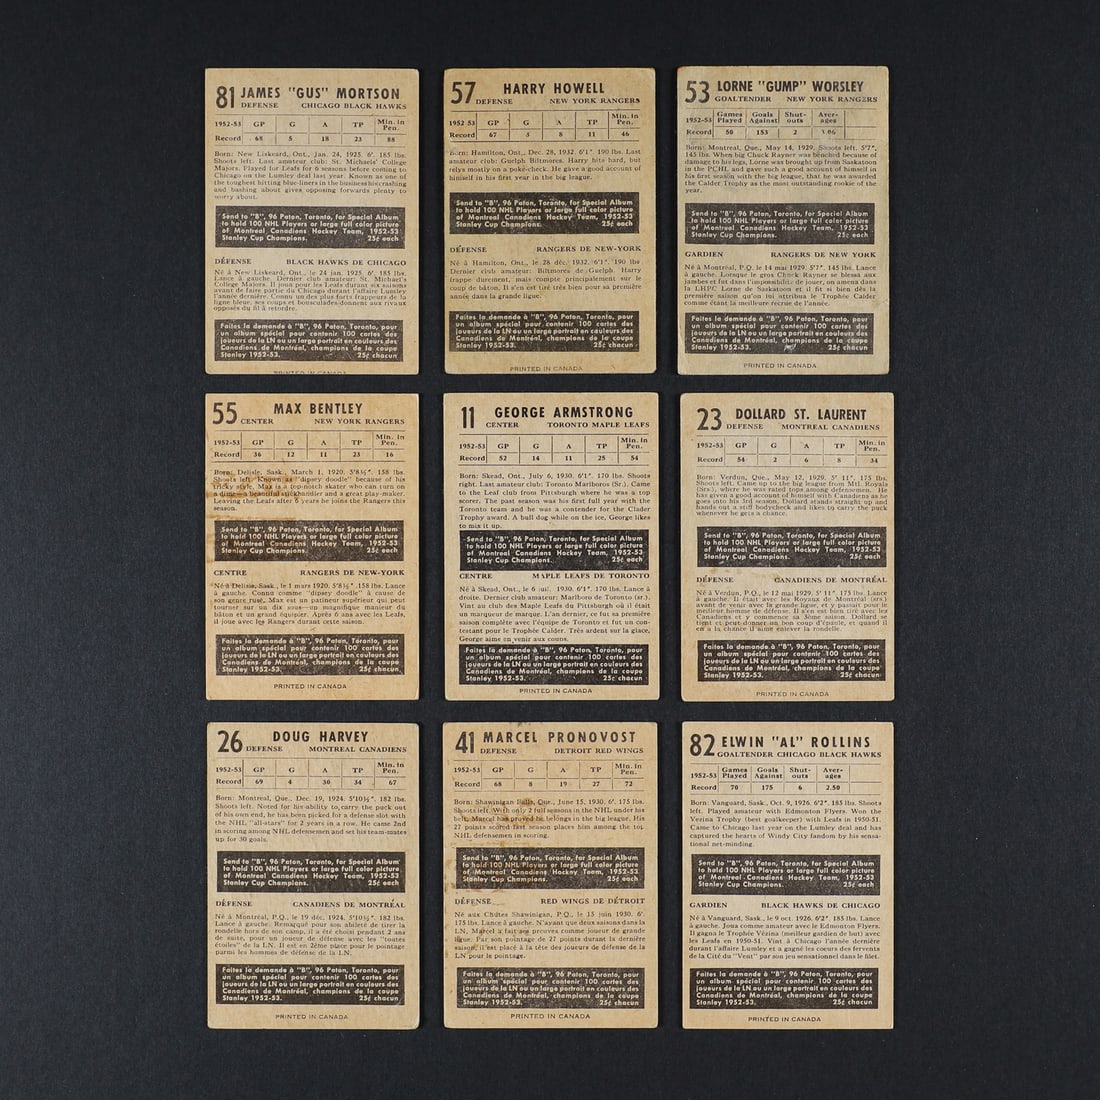 81 JAMES "GUS" MORTSON
DEFENSE CHICAGO BLACK HAWKS
1952-53 GP G A TP Min. in Pen.
Record 68 5 18 23 88
Born: New Liskeard, Ont., Jan. 24, 1925. 6'. 185 lbs.
Shoots left. Last amateur club: St. Michaels' College
Majors. Played for Leafs for 6 seasons before coming to
Chicago on the Lumley deal last year. Known as one of
the toughest hitting blue-liners in the business his crashing
and bashing about gives opposing forwards plenty to
worry about.
Send to "B", 96 Paton, Toronto, for Special Album
to hold 100 NHL Players or large full color picture
of Montreal Canadiens Hockey Team, 1952-53
Stanley Cup Champions. 25¢ each
DÉFENSE BLACK HAWKS DE CHICAGO
Né à New Liskeard, Ont., le 24 jan. 1925. 6' 185 lbs.
Lance à gauche. Dernier club amateur: St. Michael's
College Majors. Il joua pour les Leafs durant six saisons
avant de faire partie du Chicago durant l'affaire Lumley
l'année dernière. Connu un des plus forts frappeurs de la
ligne bleue, ses coups et bousculades donnent aux rivaux
opposés du fil à retordre.
Faites la demande à "B", 96 Paton, Toronto, pour
un album spécial pour contenir 100 cartes des
joueurs de la LN ou un large portrait en couleurs des
Canadiens de Montréal, champions de la coupe
Stanley 1952-53. 25¢ chacun
PRINTED IN CANADA
57 HARRY HOWELL
DEFENSE NEW YORK RANGERS
1952-53 GP G A TP Min. in Pen.
Record 67 3 8 11 46
Born: Hamilton, Ont., Dec. 28, 1932. 6'1". 190 lbs. Last
amateur club: Guelph Biltmores. Harry hits hard, but
relys mostly on a poke-check. He gave a good account of
himself in his first year in the big league.
Send to "B", 96 Paton, Toronto, for Special Album
to hold 100 NHL Players or large full color picture
of Montreal Canadiens Hockey Team, 1952-53
Stanley Cup Champions. 25¢ each
DÉFENSE RANGERS DE NEW-YORK
Né à Hamilton, Ont., le 28 déc. 1932. 6'1". 190 lbs
Dernier club amateur: Biltmores de Guelph. Harry
frappe durement, mais compte principalement sur le
coup de bâton. Il s'en est tiré très bien pour sa première
année dans la grande ligue.
Faites la demande à "B", 96 Paton, Toronto, pour
un album spécial pour contenir 100 cartes des
joueurs de la LN ou un large portrait en couleurs des
Canadiens de Montréal, champions de la coupe
Stanley 1952-53. 25¢ chacun
PRINTED IN CANADA
53 LORNE "GUMP" WORSLEY
GOALTENDER NEW YORK RANGERS
1952-53 Games Played Goals Against Shut-outs Aver-ages
Record 50 153 2 3.06
Born: Montreal, Que., May 14, 1929. Shoots left. 5'7",
145 lbs. When big Chuck Rayner was benched because of
damage to his legs, Lorne was brought up from Saskatoon
in the PCHL and gave such a good account of himself in
his first season with the big league, that he was awarded
the Calder Trophy as the most outstanding rookie of the
year.
Send to "B", 96 Paton, Toronto, for Special Album
to hold 100 NHL Players or large full color picture
of Montreal Canadiens Hockey Team, 1952-53
Stanley Cup Champions. 25¢ each
GARDIEN RANGERS DE NEW YORK
Né à Montréal, P.Q. le 14 mai 1929. 5'7". 145 lbs. Lance
à gauche. Lorsque le gros Chuck Rayner se blessa aux
jambes et fut dans l'impossibilité de jouer, on amena dans
la LHPC Lorne de Saskatoon et il fit si bien dès la
première saison qu'on lui attribua le Trophée Calder
comme étant la meilleure recrue de l'année.
Faites la demande à "B", 96 Paton, Toronto, pour
un album spécial pour contenir 100 cartes des
joueurs de la LN ou un large portrait en couleurs des
Canadiens de Montréal, champions de la coupe
Stanley 1952-53. 25¢ chacun
PRINTED IN CANADA
55 MAX BENTLEY
CENTER NEW YORK RANGERS
1952-53 GP G A TP Min. in Pen.
Record 36 12 11 23 16
Born: Delisle, Sask., March 1, 1920. 5'8½". 158 lbs.
Shoots left. Known as "dipsey doodle" because of his
tricky style, Max is a top-notch skater who can turn on
a dime—a beautiful stickhandler and a great play-maker.
Leaving the Leafs after 6 years he joins the Rangers this
season.
Send to "B", 96 Paton, Toronto, for Special Album
to hold 100 NHL Players or large full color picture
of Montreal Canadiens Hockey Team, 1952-53
Stanley Cup Champions. 25¢ each
CENTRE RANGERS DE NEW-YORK
Né à Delisle, Sask., le 1 mars 1920. 5'8½". 158 lbs. Lance
à gauche. Connu comme "dipsey doodle" à cause de
son genre rusé, Max est un patineur supérieur qui peut
tourner sur un dix sous—un magnifique manieur du
bâton et un grand équipier. Après 6 ans avec les Leafs,
il joue avec les Rangers durant cette saison.
Faites la demande à "B", 96 Paton, Toronto, pour
un album spécial pour contenir 100 cartes des
joueurs de la LN ou un large portrait en couleurs des
Canadiens de Montréal, champions de la coupe
Stanley 1952-53. 25¢ chacun
PRINTED IN CANADA
11 GEORGE ARMSTRONG
CENTER TORONTO MAPLE LEAFS
1952-53 GP G A TP Min. in Pen.
Record 52 14 11 25 54
Born: Skead, Ont., July 6, 1930. 6'1". 170 lbs. Shoots
right. Last amateur club: Toronto Marlboros (Sr.). Came
to the Leaf club from Pittsburgh where he was a top
scorer. The past season was his first full year with the
Toronto team and he was a contender for the Clader
Trophy award. A bull dog while on the ice, George likes
to mix it up.
Send to "B", 96 Paton, Toronto, for Special Album
to hold 100 NHL Players or large full color picture
of Montreal Canadiens Hockey Team, 1952-53
Stanley Cup Champions. 25¢ each
CENTRE MAPLE LEAFS DE TORONTO
Né à Skead, Ont., le 6 juil. 1930. 6'1". 170 lbs. Lance à
droite. Dernier club amateur: Marlboro de Toronto (sr.)
Vint au club des Maple Leafs du Pittsburgh où il était
un marqueur de marque. L'an dernier, ce fut sa première
saison complète avec l'équipe de Toronto et fut un con-
testant pour le Trophée Calder. Très ardent sur la glace,
George aime en venir aux coups.
Faites la demande à "B", 96 Paton, Toronto, pour
un album spécial pour contenir 100 cartes des
joueurs de la LN ou un large portrait en couleurs des
Canadiens de Montréal, champions de la coupe
Stanley 1952-53. 25¢ chacun
PRINTED IN CANADA
23 DOLLARD ST. LAURENT
DEFENSE MONTREAL CANADIENS
1952-53 GP G A TP Min. in Pen.
Record 54 2 6 8 34
Born: Verdun, Que., May 12, 1929. 5' 11". 175 lbs.
Shoots left. Came up to the big league from Mtl. Royals
(Srs.), where he was rated tops among defensemen. He
has given a good account of himself with Canadiens as he
goes into his 3rd season. Dollard stands straight up and
hands out a stiff bodycheck and likes to carry the puck
whenever he gets a chance.
Send to "B", 96 Paton, Toronto, for Special Album
to hold 100 NHL Players or large full color picture
of Montreal Canadiens Hockey Team, 1952-53
Stanley Cup Champions. 25¢ each
DÉFENSE CANADIENS DE MONTRÉAL
Né à Verdun, P.Q., le 12 mai 1929. 5' 11". 175 lbs. Lance
à gauche. Il était avec les Royaux de Montréal (srs.)
avant de venir avec la grande ligue, et y passait pour le
meilleur homme de défense. Il s'en est bien tiré avec les
Canadiens et y commence sa 3ème saison. Dollard se
tient et peut donner un bon coup d'épaule, et quand il
en a la chance il aime enlever la rondelle.
Faites la demande à "B", 96 Paton, Toronto, pour
un album spécial pour contenir 100 cartes des
joueurs de la LN ou un large portrait en couleurs des
Canadiens de Montréal, champions de la coupe
Stanley 1952-53. 25¢ chacun
PRINTED IN CANADA
26 DOUG HARVEY
DEFENSE MONTREAL CANADIENS
1952-53 GP G A TP Min. in Pen.
Record 69 4 30 34 67
Born: Montreal, Que., Dec. 19, 1924. 5'10½". 182 lbs.
Shoots left. Noted for his ability to carry the puck out
of his own end, he has been picked for a defense slot with
the NHL "all-stars" for 2 years in a row. He came 2nd
in scoring among NHL defensemen and set his team-mates
up for 30 goals.
Send to "B", 96 Paton, Toronto, for Special Album
to hold 100 NHL Players or large full color picture
of Montreal Canadiens Hockey Team, 1952-53
Stanley Cup Champions. 25¢ each
DÉFENSE CANADIENS DE MONTRÉAL
Né à Montréal, P.Q., le 19 déc. 1924. 5'10½". 182 lbs.
Lance à gauche. Remarqué pour son abileté de tirer la
rondelle hors de son camp, il a été choisi pendant 2 ans
de suite, pour un joueur de défense avec les "toutes
étoiles" de la LN. Il est en 2ème place pour le pointage
parmi les hommes de défense de la LN.
Faites la demande à "B", 96 Paton, Toronto, pour
un album spécial pour contenir 100 cartes des
joueurs de la LN ou un large portrait en couleurs des
Canadiens de Montréal, champions de la coupe
Stanley 1952-53. 25¢ chacun
PRINTED IN CANADA
41 MARCEL PRONOVOST
DEFENSE DETROIT RED WINGS
1952-53 GP G A TP Min. in Pen.
Record 68 8 19 27 72
Born: Shawinigan Falls, Que., June 15, 1930. 6'. 175 lbs.
Shoots left. With only 2 full seasons in the NHL under his
belt, Marcel has proved he belongs in the big league. His
27 points scored last season places him among the top
NHL defensemen in scoring.
Send to "B", 96 Paton, Toronto, for Special Album
to hold 100 NHL Players or large full color picture
of Montreal Canadiens Hockey Team, 1952-53
Stanley Cup Champions. 25¢ each
DÉFENSE RED WINGS DE DÉTROIT
Né aux Chûtes Shawinigan, P.Q., le 15 juin 1930. 6'.
175 lbs. Lance à gauche. N'ayant que deux saisons dans la
LN, Marcel a fait ses preuves comme joueur de grande
ligue. Par son pointage de 27 points durant la dernière
saison, il est placé à la tête des joueurs de défense de la
LN pour le pointage.
Faites la demande à "B", 96 Paton, Toronto, pour
un album spécial pour contenir 100 cartes des
joueurs de la LN ou un large portrait en couleurs des
Canadiens de Montréal, champions de la coupe
Stanley 1952-53. 25¢ chacun
PRINTED IN CANADA
82 ELWIN "AL" ROLLINS
GOALTENDER CHICAGO BLACK HAWKS
1952-53 Games Played Goals Against Shut-outs Aver-ages
Record 70 175 6 2.50
Born: Vanguard, Sask., Oct. 9, 1926. 6'2". 185 lbs. Shoots
left. Played amateur with Edmonton Flyers. Won the
Verina Trophy (best goalkeeper) with Leafs in 1950-51.
Came to Chicago last year on the Lumley deal and has
captured the hearts of Windy City fandom by his sensa-
tional net-minding.
Send to "B", 96 Paton, Toronto, for Special Album
to hold 100 NHL Players or large full color picture
of Montreal Canadiens Hockey Team, 1952-53
Stanley Cup Champions. 25¢ each
GARDIEN BLACK HAWKS DE CHICAGO
Né à Vanguard, Sask., le 9 oct. 1926. 6'2". 185 lbs. Lance
à gauche. Joua comme amateur avec le Edmonton Flyers.
Il gagna le Trophée Vézina (meilleur gardien de but) avec
les Leafs en 1950-51. Vint à Chicago l'année dernière
durant l'affaire Lumley et a gagné les coeurs des fervents
de la Cité du "Vent" par son jeu sensationnel dans le filet.
Faites la demande à "B", 96 Paton, Toronto, pour
un album spécial pour contenir 100 cartes des
joueurs de la LN ou un large portrait en couleurs des
Canadiens de Montréal, champions de la coupe
Stanley 1952-53. 25¢ chacun
PRINTED IN CANADA